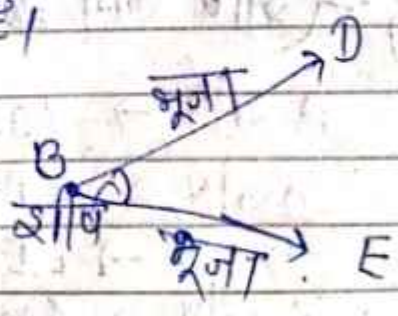 D
भूजा
B
शीर्ष
भूजा
E